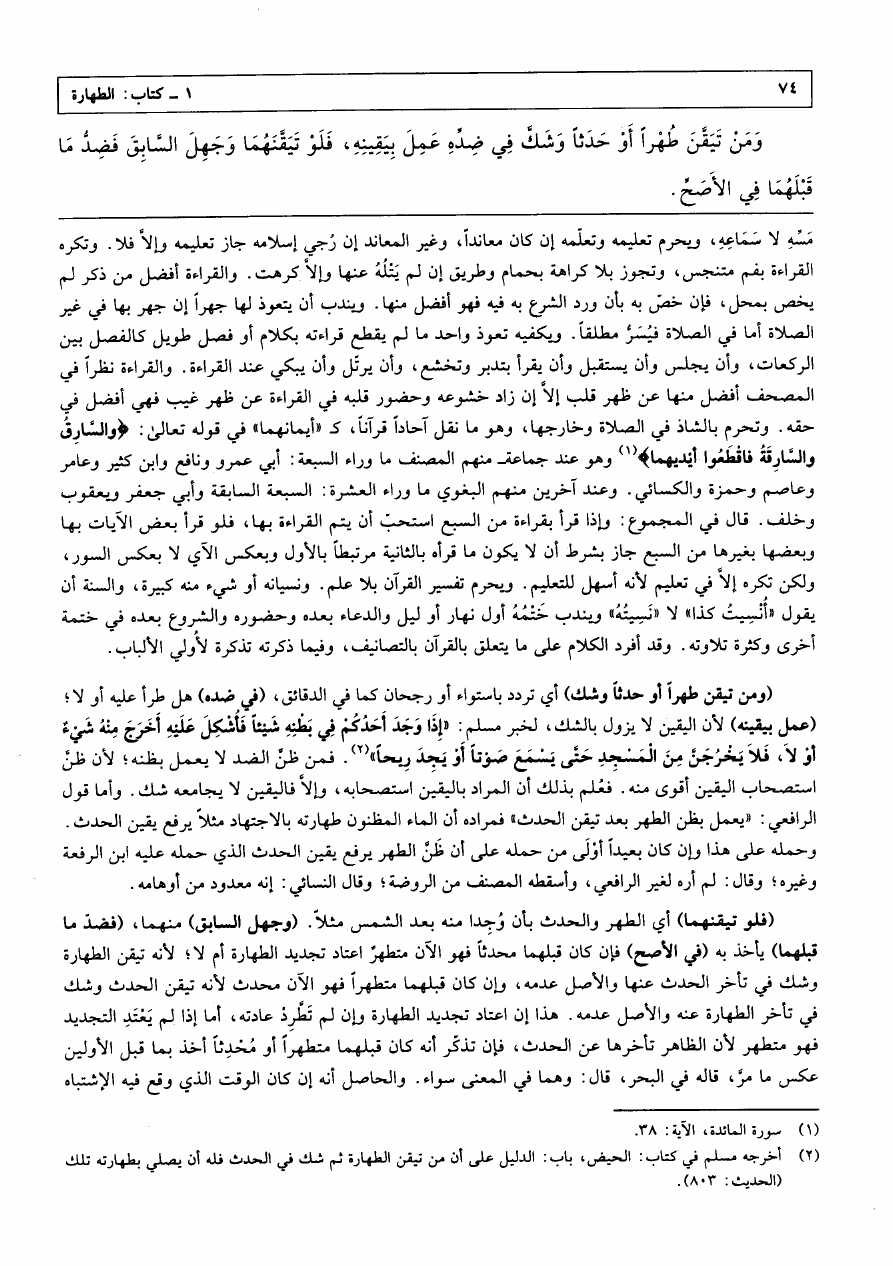 ٧٤
١ - كتاب: الطهارة
وَمَنْ تَيَقَّنَ طُهْراً أَوْ حَدَثاً وَشَكَّ فِي ضِدِّهِ عَمِلَ بِيَقِينِهِ، فَلَوْ تَيَقَّنَهُمَا وَجَهِلَ السَّابِقَ فَضِدُّ مَا
قَبْلَهُمَا فِي الأَصَحِّ.
مَسِّهِ لا سَمَاعِهِ، ويحرم تعليمه وتعلّمه إن كان معانداً، وغير المعاند إن رُجي إسلامه جاز تعليمه وإلاّ فلا. وتكره
القراءة بفم متنجس، وتجوز بلا كراهة بحمام وطريق إن لم يَتْلُهُ عنها وإلاّ كرهت. والقراءة أفضل من ذكر لم
يخص بمحل، فإن خصّ به بأن ورد الشرع به فيه فهو أفضل منها. ويندب أن يتعوذ لها جهراً إن جهر بها في غير
الصلاة أما في الصلاة فيُسَرُّ مطلقاً. ويكفيه تعوذ واحد ما لم يقطع قراءته بكلام أو فصل طويل كالفصل بين
الركعات، وأن يجلس وأن يستقبل وأن يقرأ بتدبر وتخشع، وأن يرتّل وأن يبكي عند القراءة. والقراءة نظراً في
المصحف أفضل منها عن ظهر قلب إلاَّ إن زاد خشوعه وحضور قلبه في القراءة عن ظهر غيب فهي أفضل في
حقه. وتحرم بالشاذ في الصلاة وخارجها، وهو ما نقل آحاداً قرآناً، كـ «أيمانهما» في قوله تعالىٰ: ﴿والسَّارِقُ
والسَّارِقَةُ فاقْطَعُوا أيْديهما﴾(١) وهو عند جماعةـ منهم المصنف ما وراء السبعة: أبي عمرو ونافع وابن كثير وعامر
وعاصم وحمزة والكسائي. وعند آخرين منهم البغوي ما وراء العشرة: السبعة السابقة وأبي جعفر ويعقوب
وخلف. قال في المجموع: وإذا قرأ بقراءة من السبع استحبّ أن يتم القراءة بها، فلو قرأ بعض الآيات بها
وبعضها بغيرها من السبع جاز بشرط أن لا يكون ما قرأه بالثانية مرتبطاً بالأول وبعكس الآي لا بعكس السور،
ولكن تكره إلاَّ في تعليم لأنه أسهل للتعليم. ويحرم تفسير القرآن بلا علم. ونسيانه أو شيء منه كبيرة، والسنة أن
يقول «أُنْسِيتُ كذا» لا «نَسِيتُهُ» ويندب خَتْمُهُ أول نهار أو ليل والدعاء بعده وحضوره والشروع بعده في ختمة
أخرى وكثرة تلاوته. وقد أفرد الكلام على ما يتعلق بالقرآن بالتصانيف، وفيما ذكرته تذكرة لأُولي الألباب.
(ومن تيقن طهراً أو حدثاً وشك) أي تردد باستواء أو رجحان كما في الدقائق، (في ضده) هل طرأ عليه أو لا؛
(عمل بيقينه) لأن اليقين لا يزول بالشك، لخبر مسلم: «إِذَا وَجَدَ أَحَدُكُمْ فِي بَطْنِهِ شَيْئاً فَأُشْكِلَ عَلَيْهِ أَخَرَجَ مِنْهُ شَيْءٌ
أوْ لاَ، فَلاَ يَخْرُجَنَّ مِنَ الْمَسْجِدِ حَتَّى يَسْمَعَ صَوْتاً أوْ يَجِدَ رِيحاً»(٢). فمن ظنّ الضد لا يعمل بظنه؛ لأن ظنّ
استصحاب اليقين أقوى منه. فعُلم بذلك أن المراد باليقين استصحابه، وإلاَّ فاليقين لا يجامعه شك. وأما قول
الرافعي: «يعمل بظن الطهر بعد تيقن الحدث» فمراده أن الماء المظنون طهارته بالاجتهاد مثلاً يرفع يقين الحدث.
وحمله على هذا وإن كان بعيداً أوْلَى من حمله على أن ظَنَّ الطهر يرفع يقين الحدث الذي حمله عليه ابن الرفعة
وغيره؛ وقال: لم أره لغير الرافعي، وأسقطه المصنف من الروضة؛ وقال النسائي: إنه معدود من أوهامه.
(فلو تيقنهما) أي الطهر والحدث بأن وُجِدا منه بعد الشمس مثلاً. (وجهل السابق) منهما، (فضدّ ما
قبلهما) يأخذ به (في الأصح) فإن كان قبلهما محدثاً فهو الآن متطهرٌ اعتاد تجديد الطهارة أم لا؛ لأنه تيقن الطهارة
وشك في تأخر الحدث عنها والأصل عدمه، وإن كان قبلهما متطهراً فهو الآن محدث لأنه تيقن الحدث وشك
في تأخر الطهارة عنه والأصل عدمه. هذا إن اعتاد تجديد الطهارة وإن لم تَطَّرِدْ عادته، أما إذا لم يَعْتَدِ التجديد
فهو متطهر لأن الظاهر تأخرها عن الحدث، فإن تذكّر أنه كان قبلهما متطهراً أو مُحْدِثاً أخذ بما قبل الأولين
عكس ما مرَّ، قاله في البحر، قال: وهما في المعنى سواء. والحاصل أنه إن كان الوقت الذي وقع فيه الإشتباه
(١) سورة المائدة، الآية: ٣٨.
(٢) أخرجه مسلم في كتاب: الحيض، باب: الدليل على أن من تيقن الطهارة ثم شك في الحدث فله أن يصلي بطهارته تلك
(الحديث: ٨٠٣).